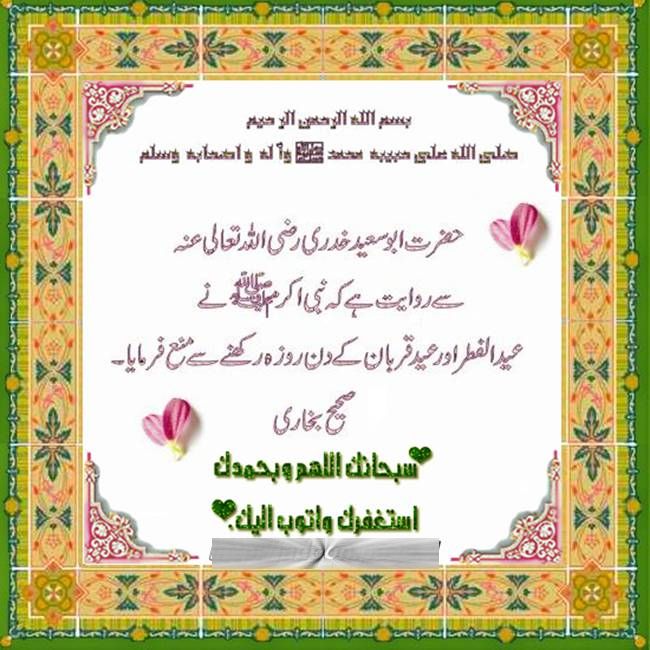 بسم الله الرحمن الرحیم
صلی الله علی حبیبه محمد ﷺ وآله و اصحابه وسلم
حضرت ابو سعید خدری رضی اللہ تعالی عنہ
سے روایت ہے کہ نبی اکرم ﷺ نے
عید الفطر اور عید قربان کے دن روزہ رکھنے سے منع فرمایا۔
صحیح بخاری
سبحانك اللهم وبحمدك
استغفرك واتوب اليك.